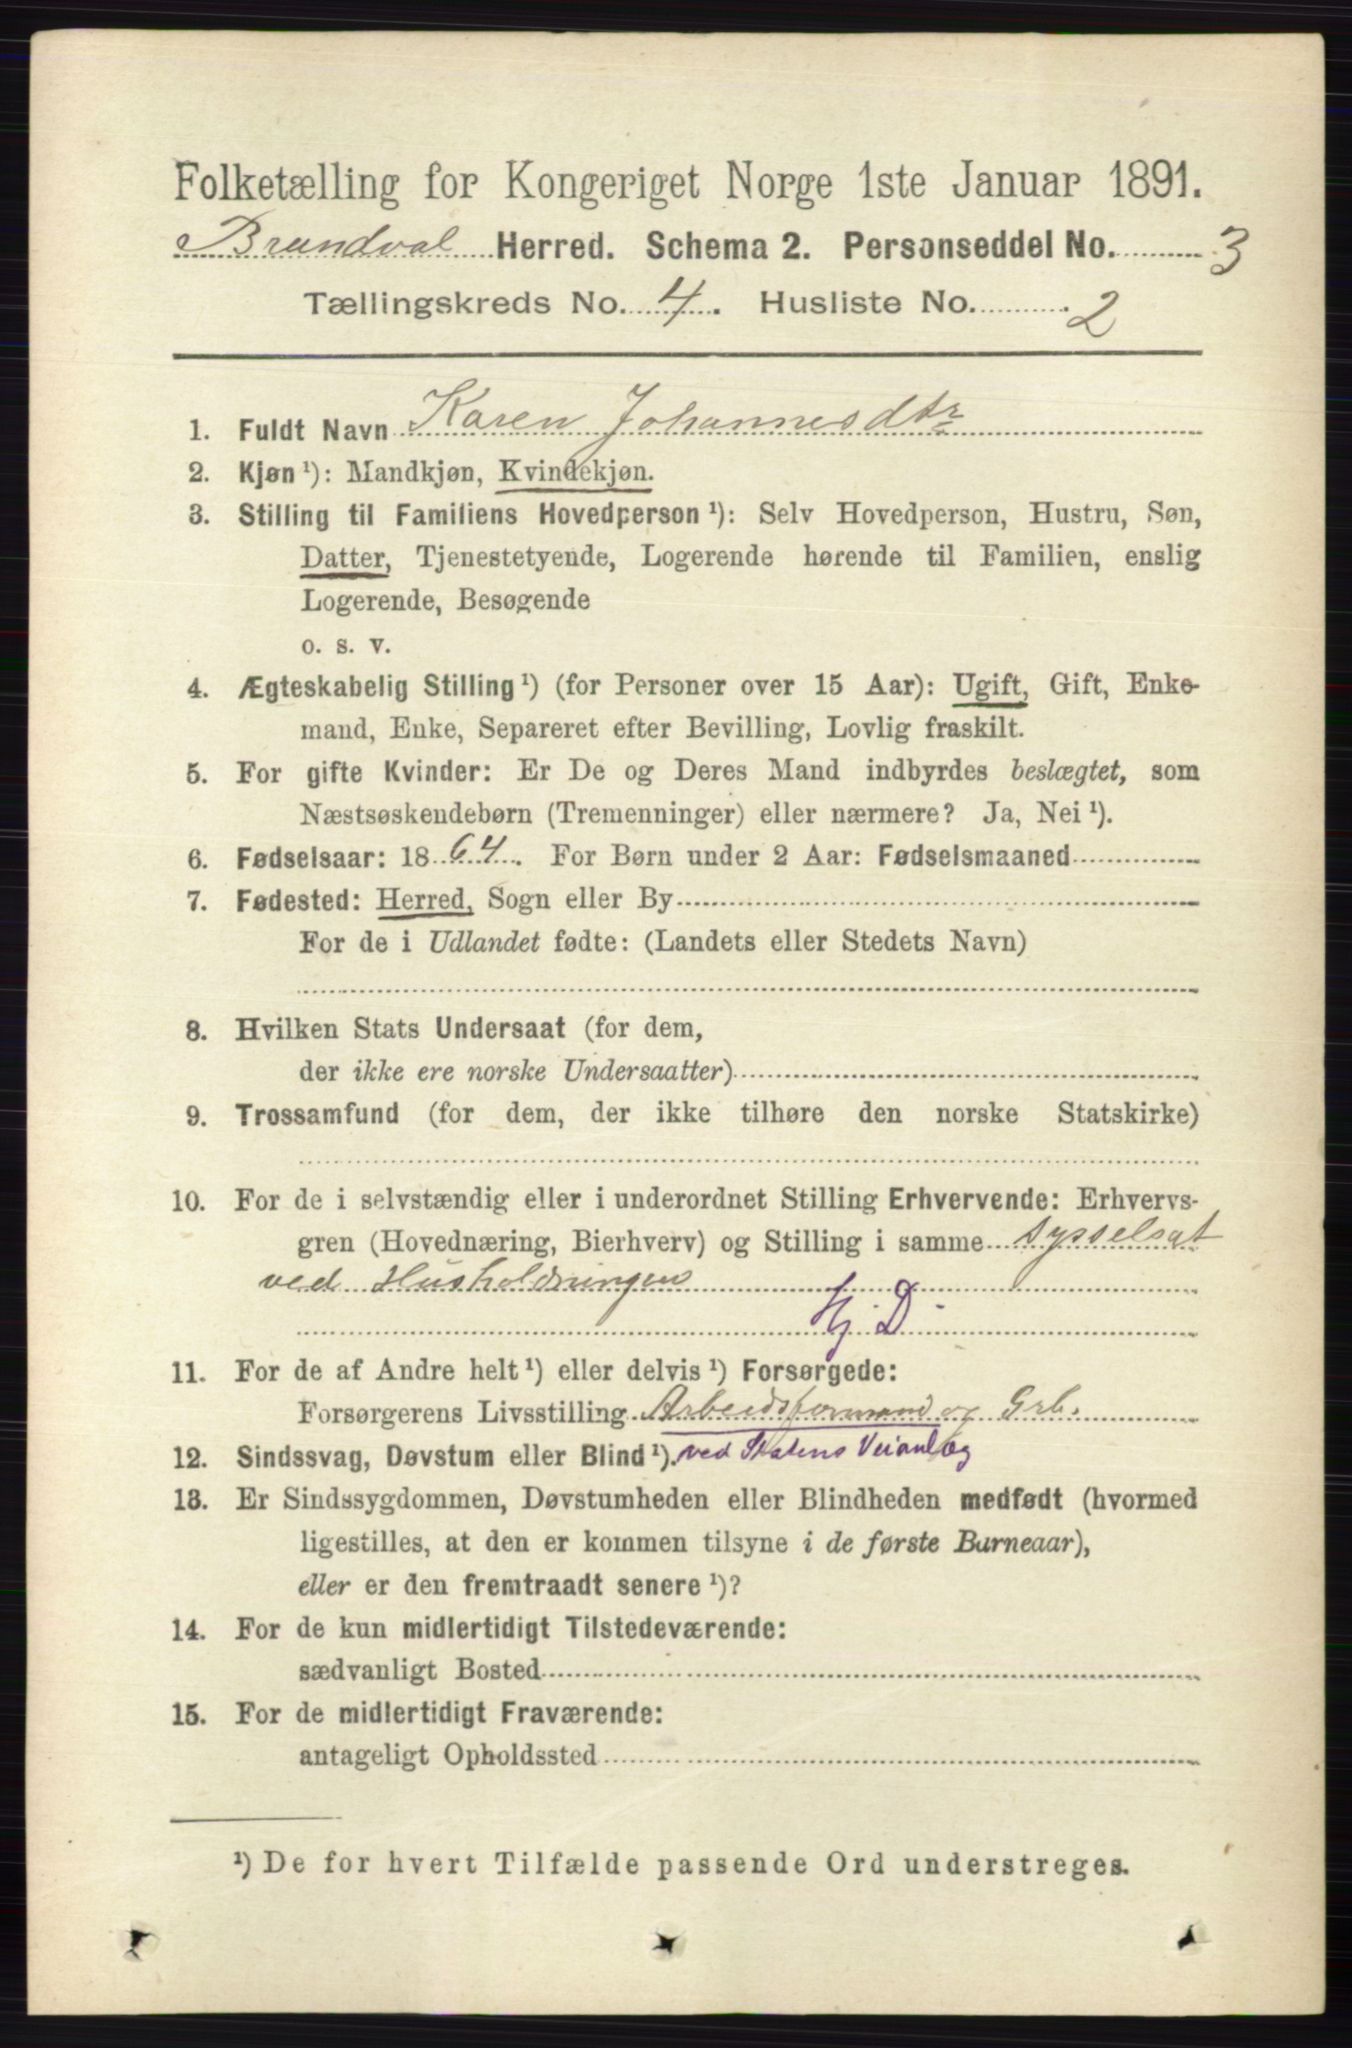 Folketælling for Kongeriget Norge 1ste Januar 1891.
Brandval Herred. Schema 2. Personseddel No. 3
Tællingskreds No. 4. Husliste No. 2
1. Fuldt Navn Karen Johannesdtr
2. Kjøn ¹): Mandkjøn, Kvindekjøn.
3. Stilling til Familiens Hovedperson ¹): Selv Hovedperson, Hustru, Søn,
Datter, Tjenestetyende, Logerende hørende til Familien, enslig
Logerende, Besøgende
o. s. v.
4. Ægteskabelig Stilling ¹) (for Personer over 15 Aar): Ugift, Gift, Enke-
mand, Enke, Separeret efter Bevilling, Lovlig fraskilt.
5. For gifte Kvinder: Er De og Deres Mand indbyrdes beslægtet, som
Næstsøskendebørn (Tremenninger) eller nærmere? Ja, Nei ¹).
6. Fødselsaar: 1864. For Børn under 2 Aar: Fødselsmaaned
7. Fødested: Herred, Sogn eller By
For de i Udlandet fødte: (Landets eller Stedets Navn)
8. Hvilken Stats Undersaat (for dem,
der ikke ere norske Undersaatter)
9. Trossamfund (for dem, der ikke tilhøre den norske Statskirke)
10. For de i selvstændig eller i underordnet Stilling Erhvervende: Erhvervs-
gren (Hovednæring, Bierhverv) og Stilling i samme sysselsat
ved Husholdningen
Hj. D
11. For de af Andre helt ¹) eller delvis ¹) Forsørgede:
Forsørgerens Livsstilling Arbeidsformand og Grb.
12. Sindssvag, Døvstum eller Blind ¹). ved Statens Veianlæg
13. Er Sindssygdommen, Døvstumheden eller Blindheden medfødt (hvormed
ligestilles, at den er kommen tilsyne i de første Barneaar),
eller er den fremtraadt senere ¹)?
14. For de kun midlertidigt Tilstedeværende:
sædvanligt Bosted
15. For de midlertidigt Fraværende:
antageligt Opholdssted
¹) De for hvert Tilfælde passende Ord understreges.